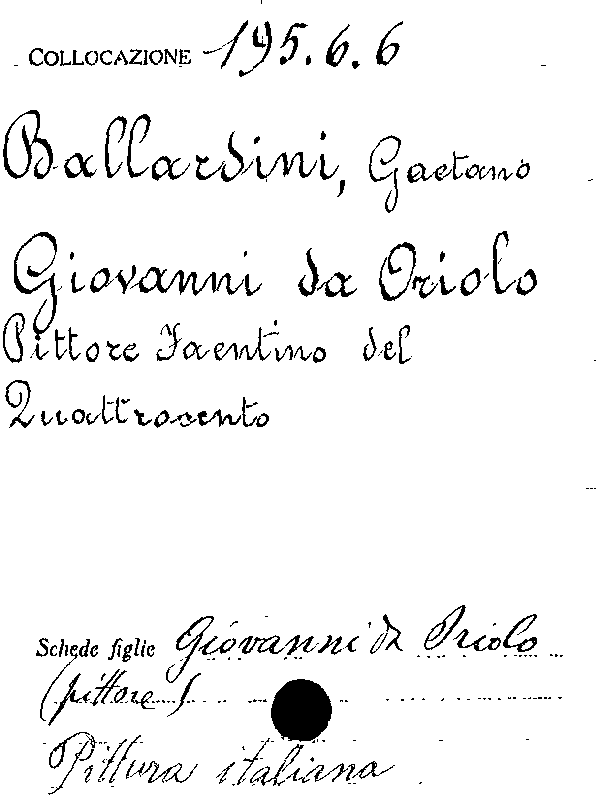 COLLOCAZIONE 195.6.6
Ballardini, Gaetano
Giovanni da Oriolo
Pittore Faentino del
Quattrocento
Schede figlie Giovanni da Oriolo
(pittore)
Pittura italiana